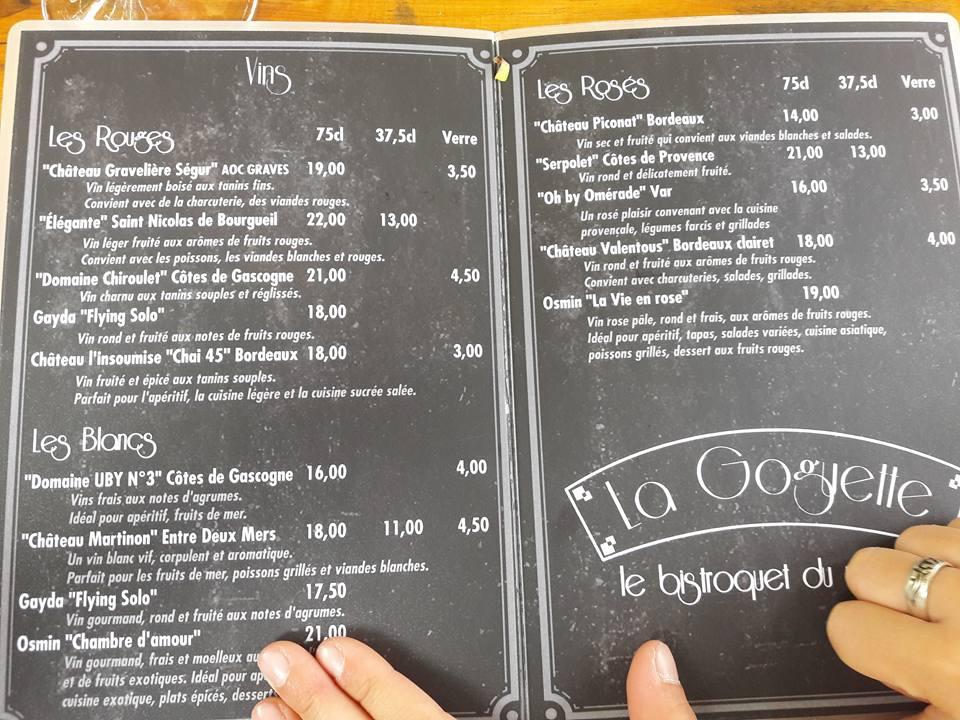 Vins
Les Rouges 75cl 37,5cl Verre
"Château Gravelière Ségur" AOC GRAVES 19,00 3,50
Vin légèrement boisé aux tanins fins.
Convient avec de la charcuterie, des viandes rouges.
"Élégante" Saint Nicolas de Bourgueil 22,00 13,00
Vin léger fruité aux arômes de fruits rouges.
Convient avec les poissons, les viandes blanches et rouges.
"Domaine Chiroulet" Côtes de Gascogne 21,00 4,50
Vin charnu aux tanins souples et réglissés.
Gayda "Flying Solo" 18,00
Vin rond et fruité aux notes de fruits rouges.
Château l'insoumise "Chai 45" Bordeaux 18,00 3,00
Vin fruité et épicé aux tanins souples.
Parfait pour l'apéritif, la cuisine légère et la cuisine sucrée salée.
Les Blancs
"Domaine UBY N°3" Côtes de Gascogne 16,00 4,00
Vins frais aux notes d'agrumes.
Idéal pour apéritif, fruits de mer.
"Château Martinon" Entre Deux Mers 18,00 11,00 4,50
Un vin blanc vif, corpulent et aromatique.
Parfait pour les fruits de mer, poissons grillés et viandes blanches.
Gayda "Flying Solo" 17,50
Vin gourmand, rond et fruité aux notes d'agrumes.
Osmin "Chambre d'amour" 21,00
Vin gourmand, frais et moelleux
et de fruits exotiques. Idéal pour
cuisine exotique, plats épicés,
Les Rosés 75cl 37,5cl Verre
"Château Piconat" Bordeaux 14,00 3,00
Vin sec et fruité qui convient aux viandes blanches et salades.
"Serpolet" Côtes de Provence 21,00 13,00
Vin rond et délicatement fruité.
"Oh by Omérade" Var 16,00 3,50
Un rosé plaisir convenant avec la cuisine
provençale, légumes farcis et grillades
"Château Valentous" Bordeaux clairet 18,00 4,00
Vin rond et fruité aux arômes de fruits rouges.
Convient avec charcuteries, salades, grillades.
Osmin "La Vie en rose" 19,00
Vin rose pâle, rond et frais, aux arômes de fruits rouges.
Idéal pour apéritif, tapas, salades variées, cuisine asiatique,
poissons grillés, dessert aux fruits rouges.
La Goguette
le bistroquet du